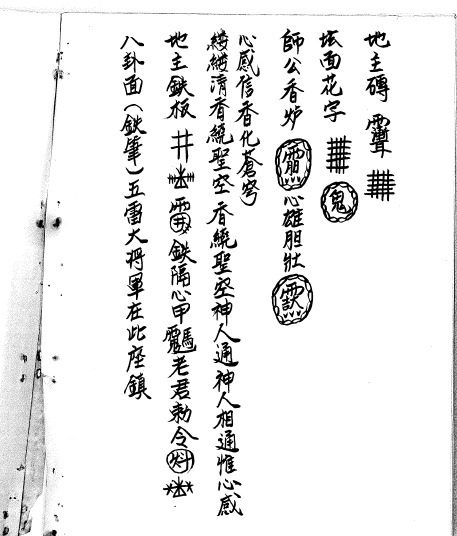 地主磚
坛面花字 鬼
師公香炉 心雄胆壯
心感信香化蒼穹)
縷縷清香繞聖空香繞聖空神人通神人相通惟心感
地主鉄板 井 鉄隔心甲 老君勅令
八卦面(鉄筆)五雷大将軍在此座鎮